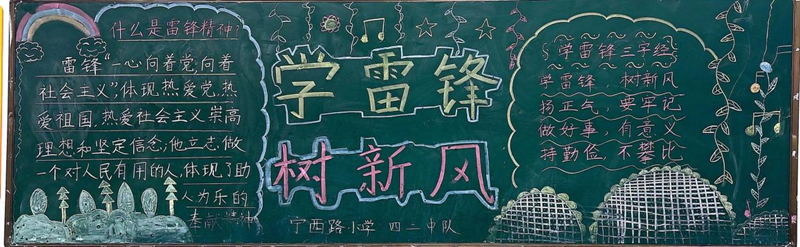 什么是雷锋精神?
雷锋“一心向着党,向着
社会主义”,体现热爱党,热
爱祖国,热爱社会主义崇高
理想和坚定信念;他立志做
一个对人民有用的人,体现了助
人为乐的
奉献精神
学雷锋
树新风
宁西路小学 四二中队
学雷锋三字经
学雷锋、树新风
扬正气,要牢记
做好事,有意义
持勤俭,不攀比